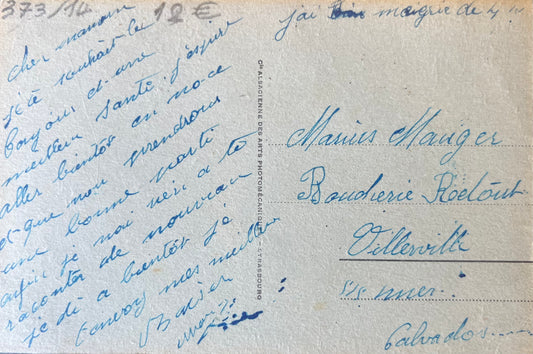 373/14 12 €
j'ai maigrie de 4
Cher maman
j'été souhait le
bonjour et une
meilleur santé j'espère
aller bientôt en no-ce
et que nou prendrons
une bonne parti
afin je nai rien a te
raconter de nouveau
je di a bientôt je
t'envoy mes meilleur
Baiser
Cie ALSACIENNE DES ARTS PHOTOMÉCANIQUES - STRASBOURG
Marius Mauger
Boucherie Rédout
Villerville
s/s mer.
Calvados